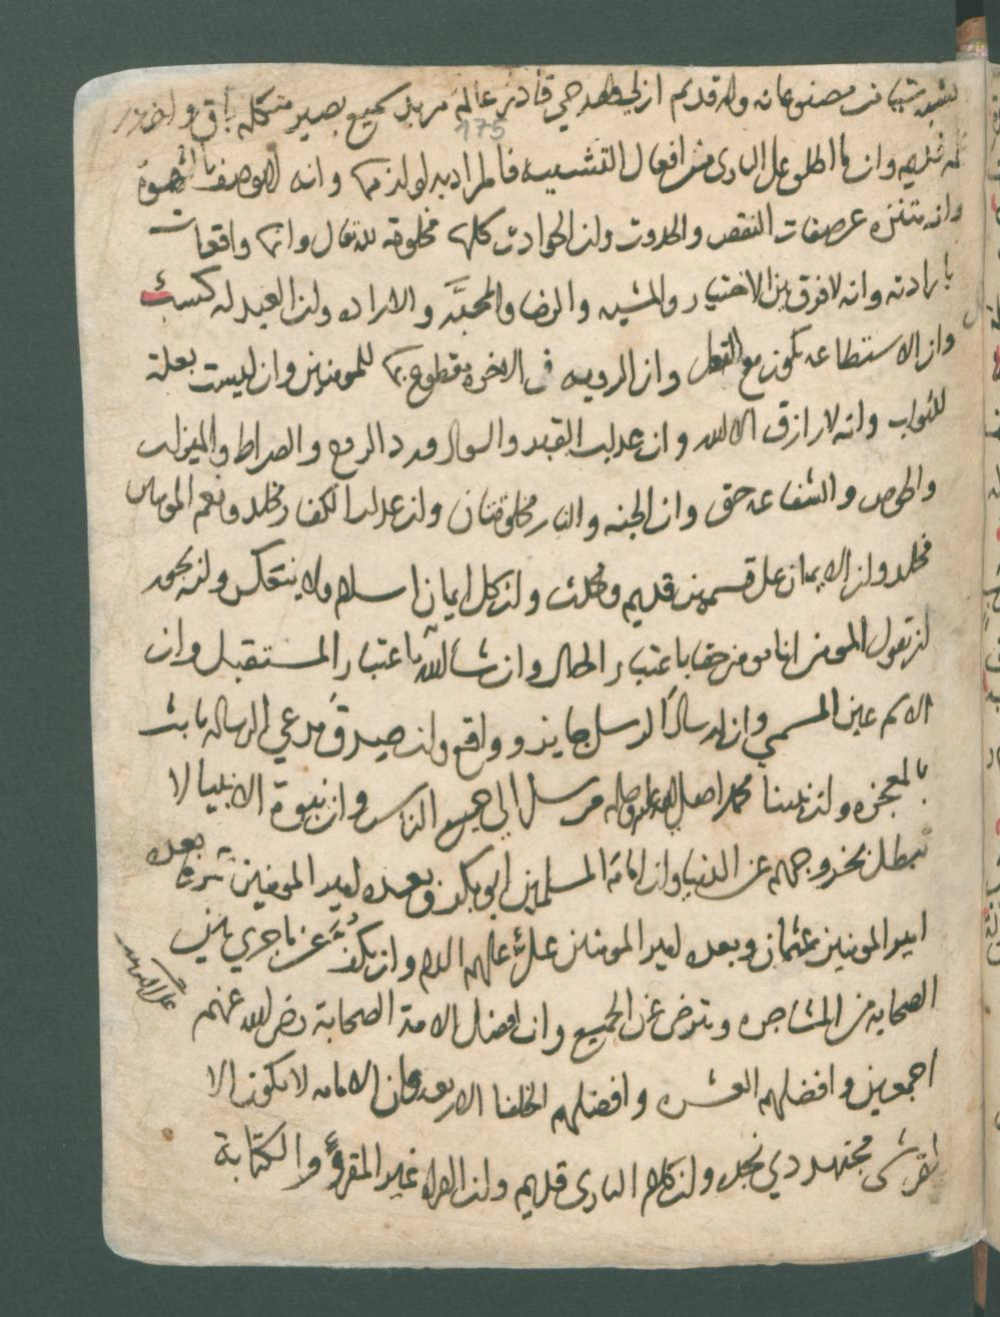 مصنوعاته وانه قديم ازلي حي قادر عالم مريد سميع بصير متكلم باق
175
وان ما اطلق على البارى من افعال التشبيه فالمراد به لوازمها وانه لا يوصف
وانه يتنزه عن صفات النقص والحدوث وان الحوادث كلها مخلوقة لله تعالى وانها واقعات
بارادته وانه لا فرق بين الاختيار والمشيه والرضا والمحبة والاراده وان العبد له كسب
وان الاستطاعه تكون مع الفعل وان الرويه فى الاخره مقطوع بها للمومنين وان ليست بعلة
للثواب وانه لا رازق الا الله وان عذاب القبر والسوال ورد الروح والصراط والميزان
والحوض والشفاعه حق وان الجنه والنار مخلوقتان وان عذاب الكفار مخلد ونعيم المومنين
مخلد وان الايمان على قسمين قديم ومحدث وان كل ايمان اسلام ولا ينعكس وان يجوز
ان يقول المومن انا مومن حقا باعتبار الحال وان شاء الله باعتبار المستقبل وان
الاسم عين المسمي وان ارسال الرسل جايز وواقع وان صدق مدعي الرساله ثابت
بالمعجزه وان نبينا محمدا صلى الله عليه وسلم مرسل الي جميع الناس وان نبوة الانبيا لا
تبطل بخروجهم عن الدنيا وان امامة المسلمين ابو بكر وبعده امير المومنين عمر وبعده
امير المومنين عثمان وبعده امير المومنين علي عليهم السلام وان يكف عن ما جري بين
الصحابه من المشاجره ويترضى عن الجميع وان افضل الامة الصحابة رضى الله عنهم
اجمعين وافضلهم العشره وافضلهم الخلفا الاربعه وان الامامه لا تكون الا
لقرشى مجتهد ذي نجده وان كلام البارى قديم وان القراه غير المقروء والكتابة